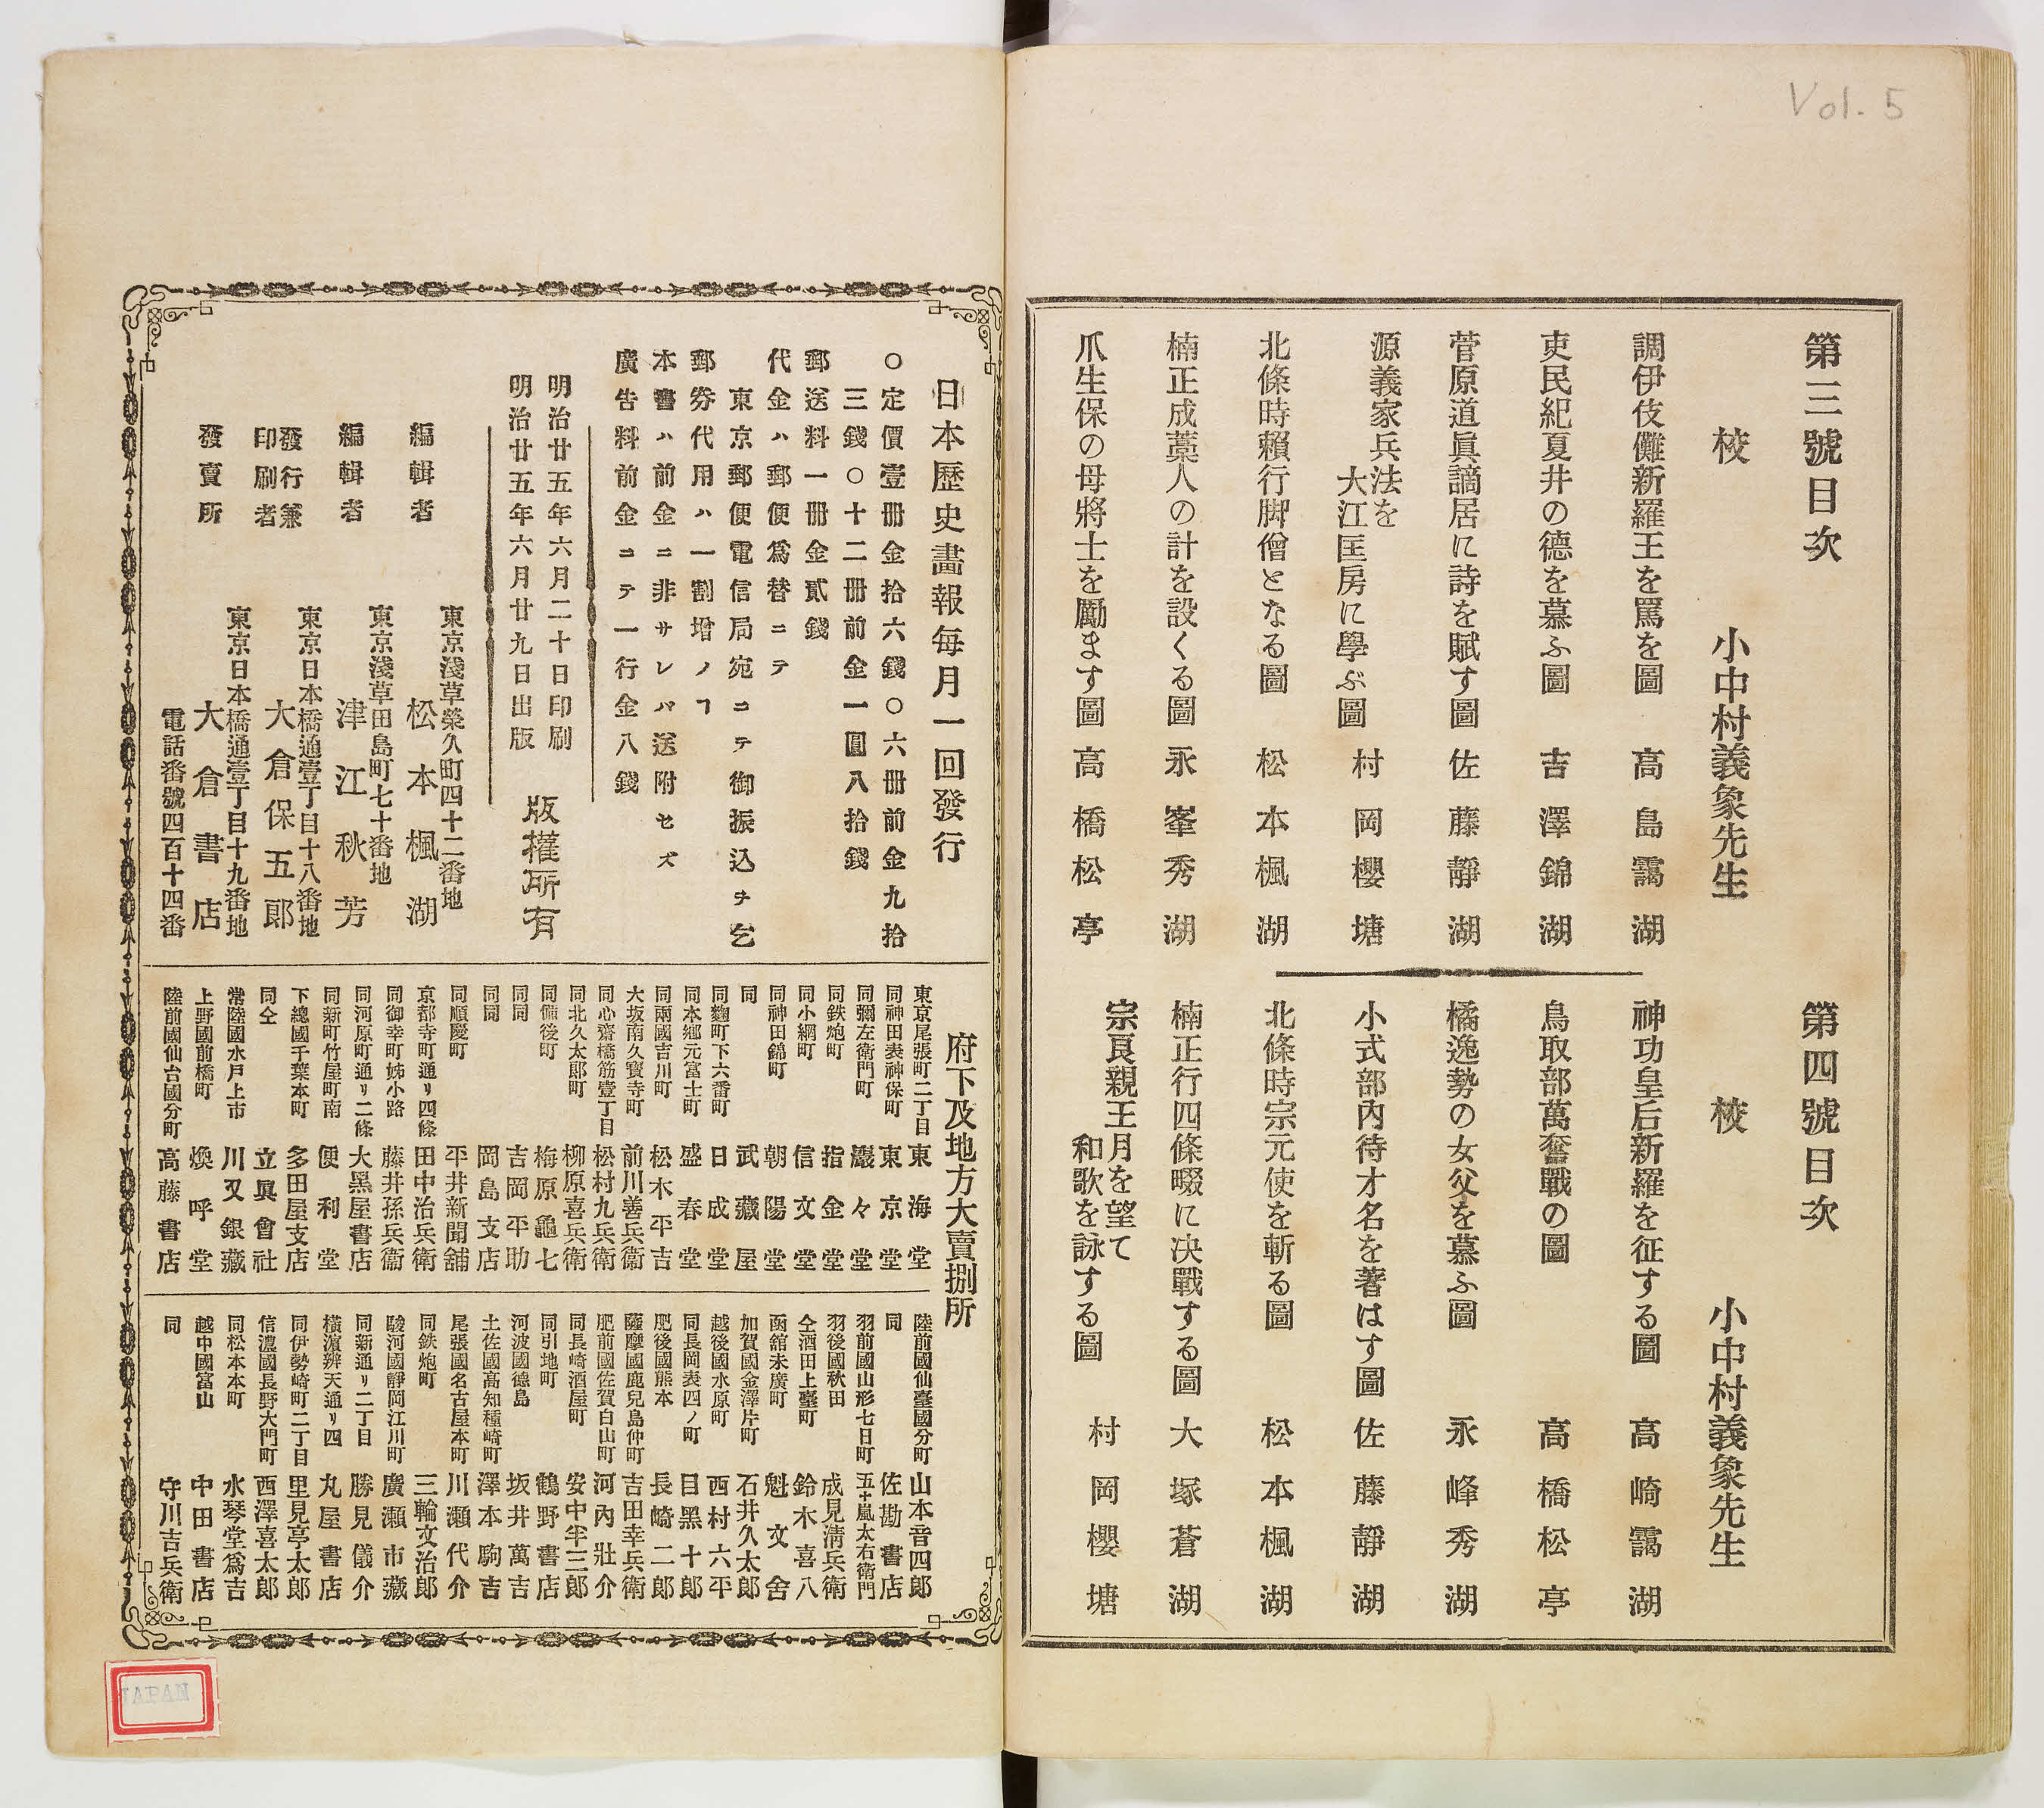 Vol. 5
第三號目次
校 小中村義象先生
調伊伎儺新羅王を罵を圖 高島靄湖
吏民紀夏井の德を慕ふ圖 吉澤錦湖
菅原道眞謫居に詩を賦す圖 佐藤靜湖
源義家兵法を
大江匡房に學ぶ圖 村岡櫻塘
北條時賴行脚僧となる圖 松本楓湖
楠正成藁人の計を設くる圖 永峯秀湖
爪生保の母將士を勵ます圖 高橋松亭
第四號目次
校 小中村義象先生
神功皇后新羅を征する圖 高崎靄湖
鳥取部萬奮戰の圖 高橋松亭
橘逸勢の女父を慕ふ圖 永峰秀湖
小式部內待才名を著はす圖 佐藤靜湖
北條時宗元使を斬る圖 松本楓湖
楠正行四條畷に决戰する圖 大塚蒼湖
宗良親王月を望て
和歌を詠する圖 村岡櫻塘
日本歷史畫報每月一回發行
○定價壹冊金拾六錢○六冊前金九拾
三錢○十二冊前金一圓八拾錢
郵送料一冊金貳錢
代金ハ郵便爲替ニテ
東京郵便電信局宛ニテ御振込ヲ乞
郵券代用ハ一割增ノヿ
本書ハ前金ニ非サレバ送附セズ
廣告料前金ニテ一行金八錢
明治廿五年六月二十日印刷
明治廿五年六月廿九日出版
版權所有
東京淺草榮久町四十二番地
編輯者 松本楓湖
東京淺草田島町七十番地
編輯者 津江秋芳
東京日本橋通壹丁目十八番地
發行兼
印刷者 大倉保五郎
東京日本橋通壹丁目十九番地
發賣所 大倉書店
電話番號四百十四番
府下及地方大賣捌所
東京尾張町二丁目 東海堂
同神田表神保町 東京堂
同彌左衛門町 巖々堂
同鉄炮町 指金堂
同小網町 信文堂
同神田錦町 朝陽堂
同 武藏屋
同麹町下六番町 日成堂
同本鄕元富士町 盛春堂
同兩國吉川町 松木平吉
大坂南久寶寺町 前川善兵衞
同心齋橋筋壹丁目 松村九兵衛
同北久太郎町 柳原喜兵衛
同備後町 梅原龜七
同同 吉岡平助
同同 岡島支店
同順慶町 平井新聞舖
京都寺町通リ四條 田中治兵衛
同御幸町姊小路 藤井孫兵衞
同河原町通リ二條 大黑屋書店
同新町竹屋町南 便利堂
下總國千葉本町 多田屋支店
同仝 立興會社
常陸國水戸上市 川又銀藏
上野國前橋町 煥呼堂
陸前國仙台國分町 高藤書店
陸前國仙臺國分町 山本音四郎
同 佐勘書店
羽前國山形七日町 五十嵐太右衛門
羽後國秋田 成見淸兵衛
仝酒田上臺町 鈴木喜八
函舘末廣町 魁文舍
加賀國金澤片町 石井久太郎
越後國水原町 西村六平
同長岡表四ノ町 目黑十郎
肥後國熊本 長崎二郎
薩摩國鹿兒島仲町 吉田幸兵衛
肥前國佐賀白山町 河內壯介
同長崎酒屋町 安中半三郎
同引地町 鶴野書店
河波國德島 坂井萬吉
土佐國高知種崎町 澤本駒吉
尾張國名古屋本町 川瀨代介
同鉄炮町 三輪文治郎
駿河國靜岡江川町 廣瀨市藏
同新通リ二丁目 勝見儀介
橫濱辨天通リ四 丸屋書店
同伊勢崎町二丁目 里見亭太郎
信濃國長野大門町 西澤喜太郎
同松本本町 水琴堂爲吉
越中國富山 中田書店
同 守川吉兵衛
JAPAN